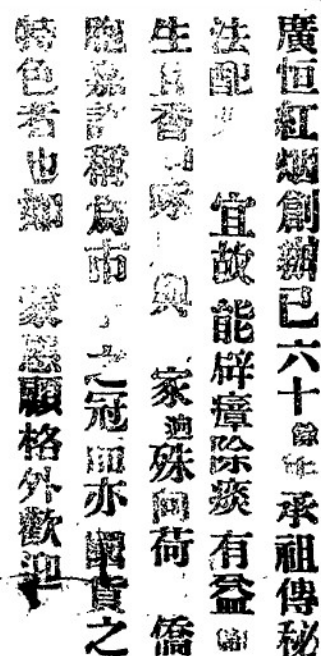 廣恒紅烟創辦已六十餘年承祖傳秘
法配 宜故能辟瘴除痰有益
生且香 與 家逈殊向荷 僑
胞 許稱為市 之冠而亦國貨之
特色者也如蒙惠顧格外歡迎